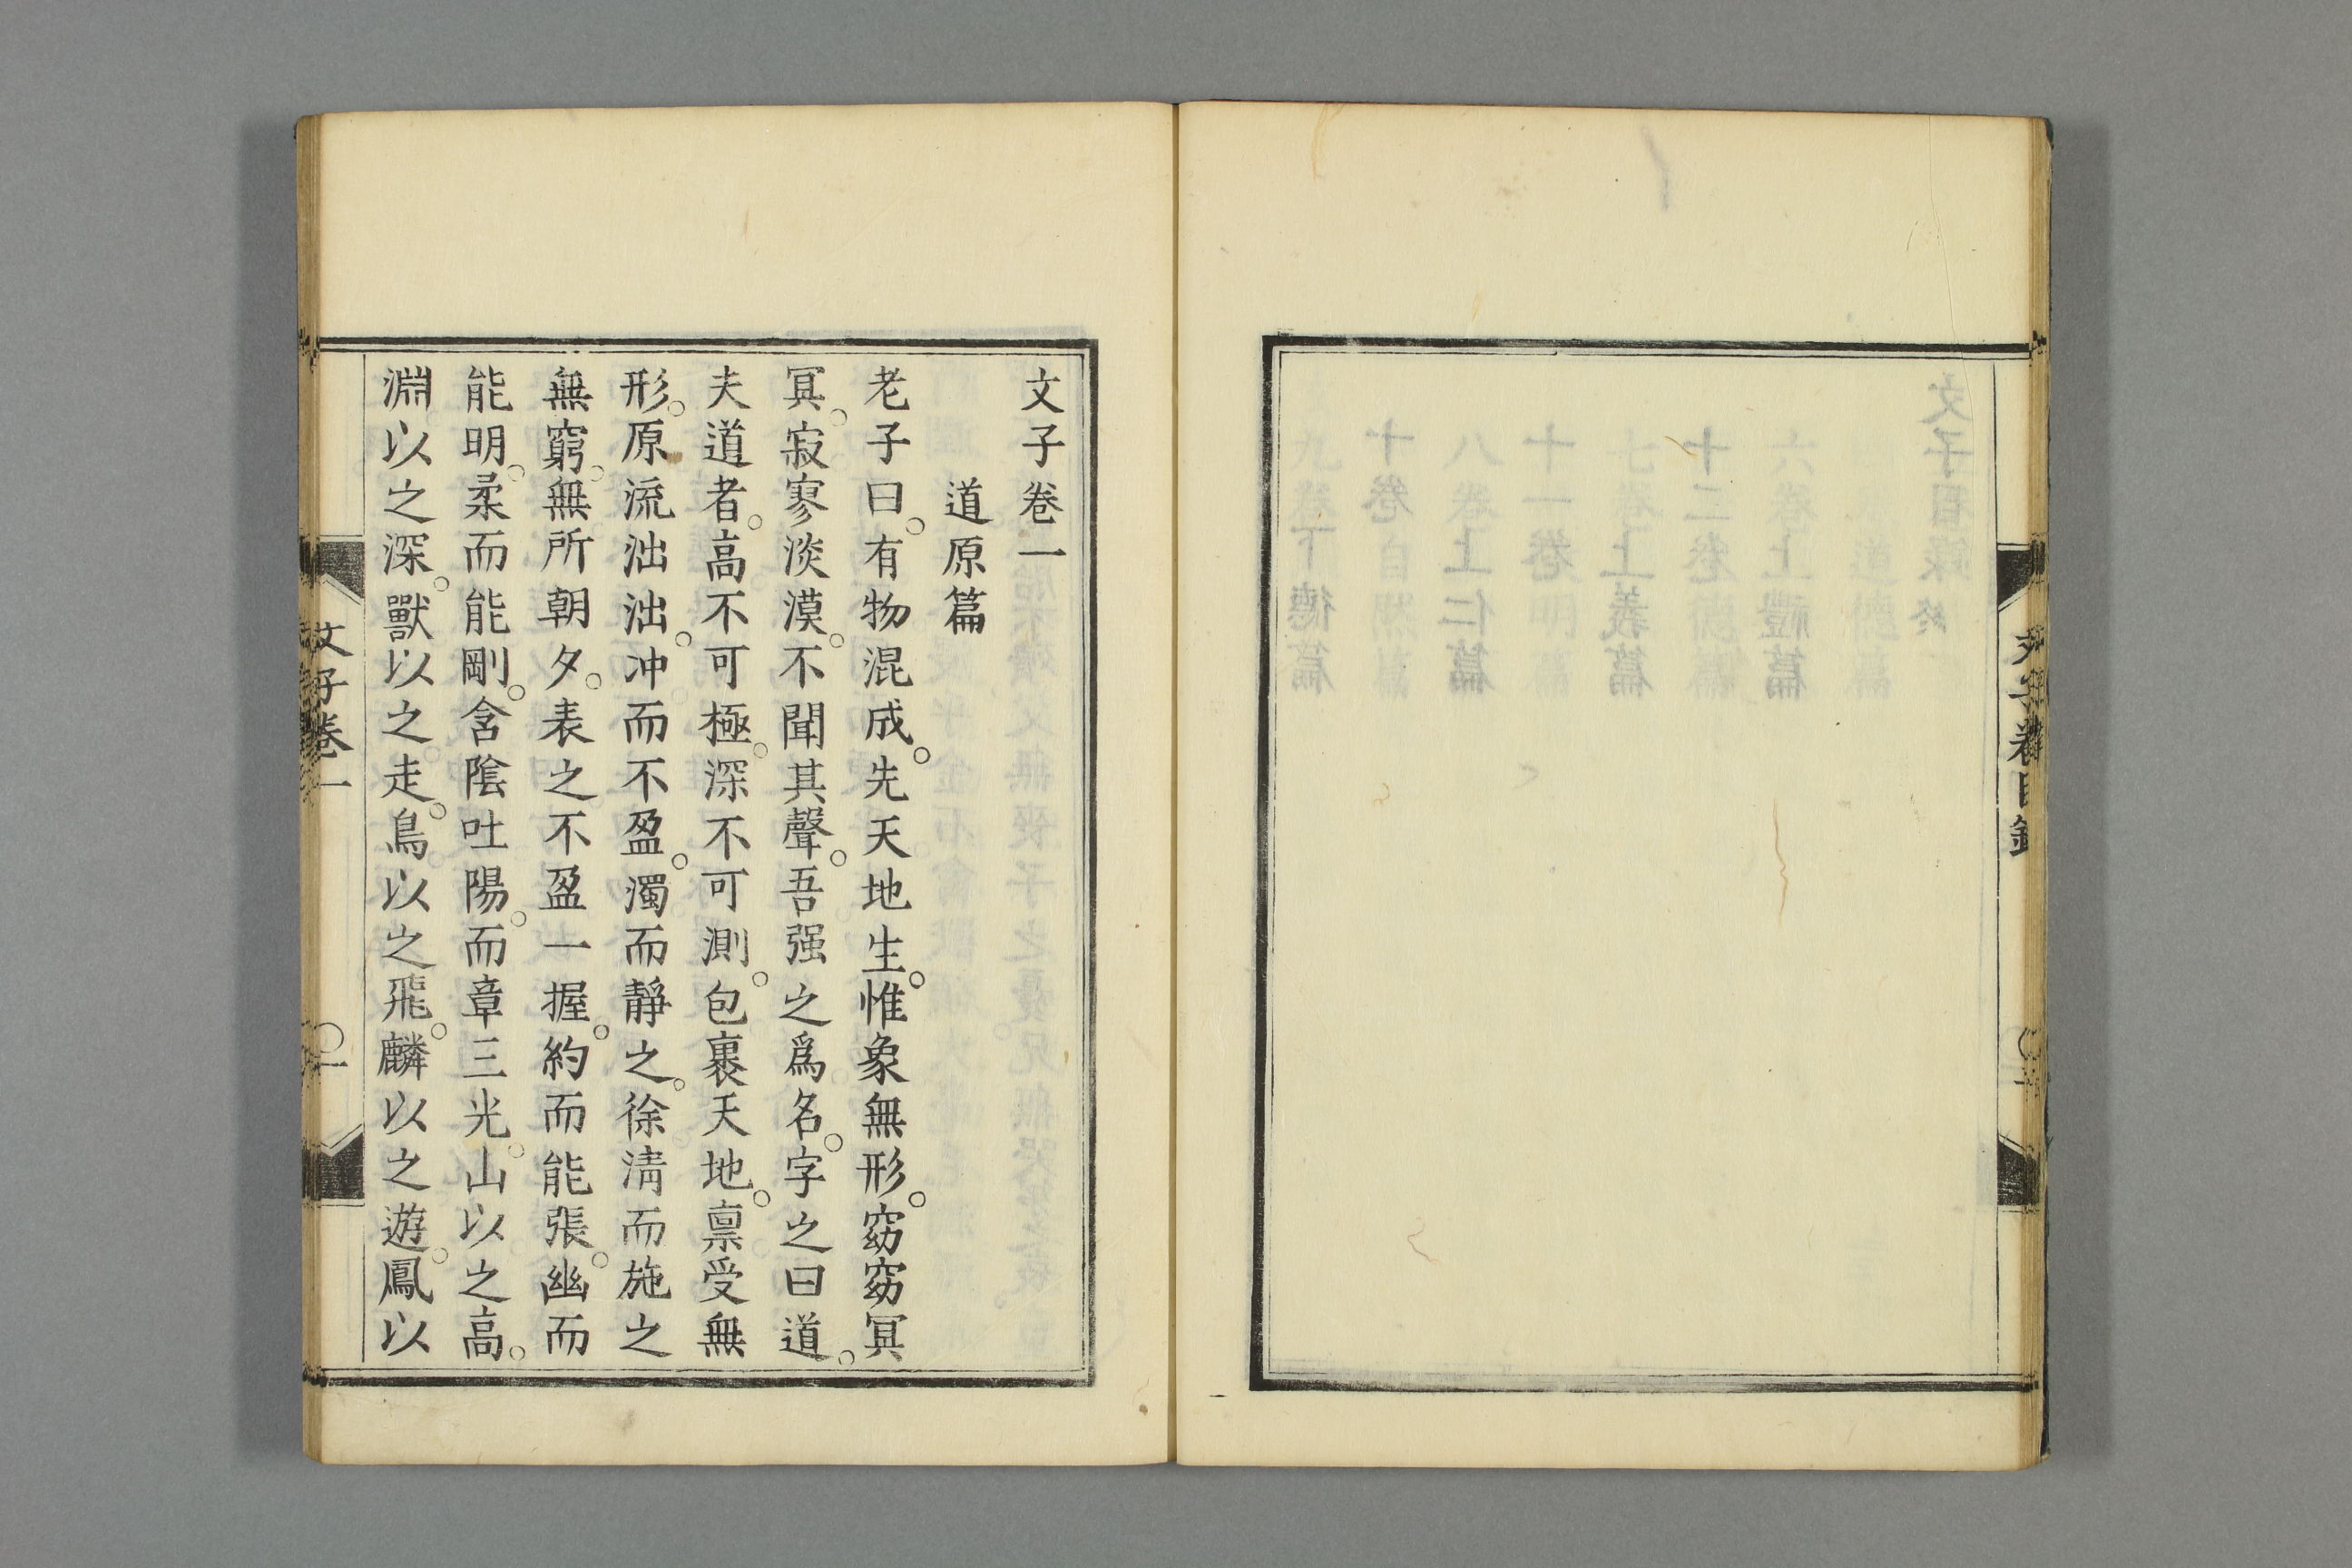 文子卷一
道原篇
老子曰。有物混成。先天地生。惟象無形。窈窈冥
冥。寂寥淡漠。不聞其聲。吾强之爲名。字之曰道。
夫道者。高不可極。深不可測。包裹天地。禀受無
形。原流泏泏。冲而不盈。濁而靜之。徐淸而施之
無窮。無所朝夕。表之不盈一握。約而能張。幽而
能明。柔而能剛。含陰吐陽。而章三光。山以之高。
淵以之深。獸以之走。鳥以之飛。麟以之遊。鳳以
文子卷一
〇一